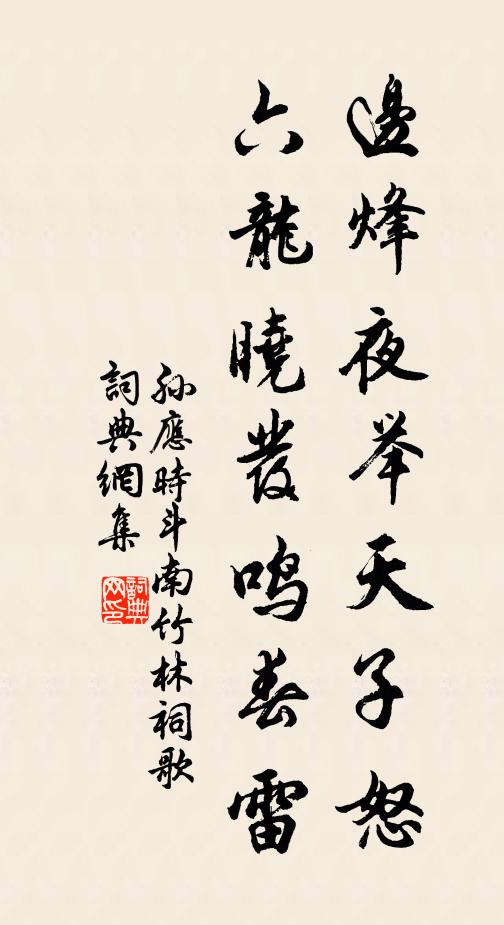 邊烽夜举天子怒
六龍曉發鳴春雷
孙應時斗南竹林祠歌
詞典網集
詞典網印